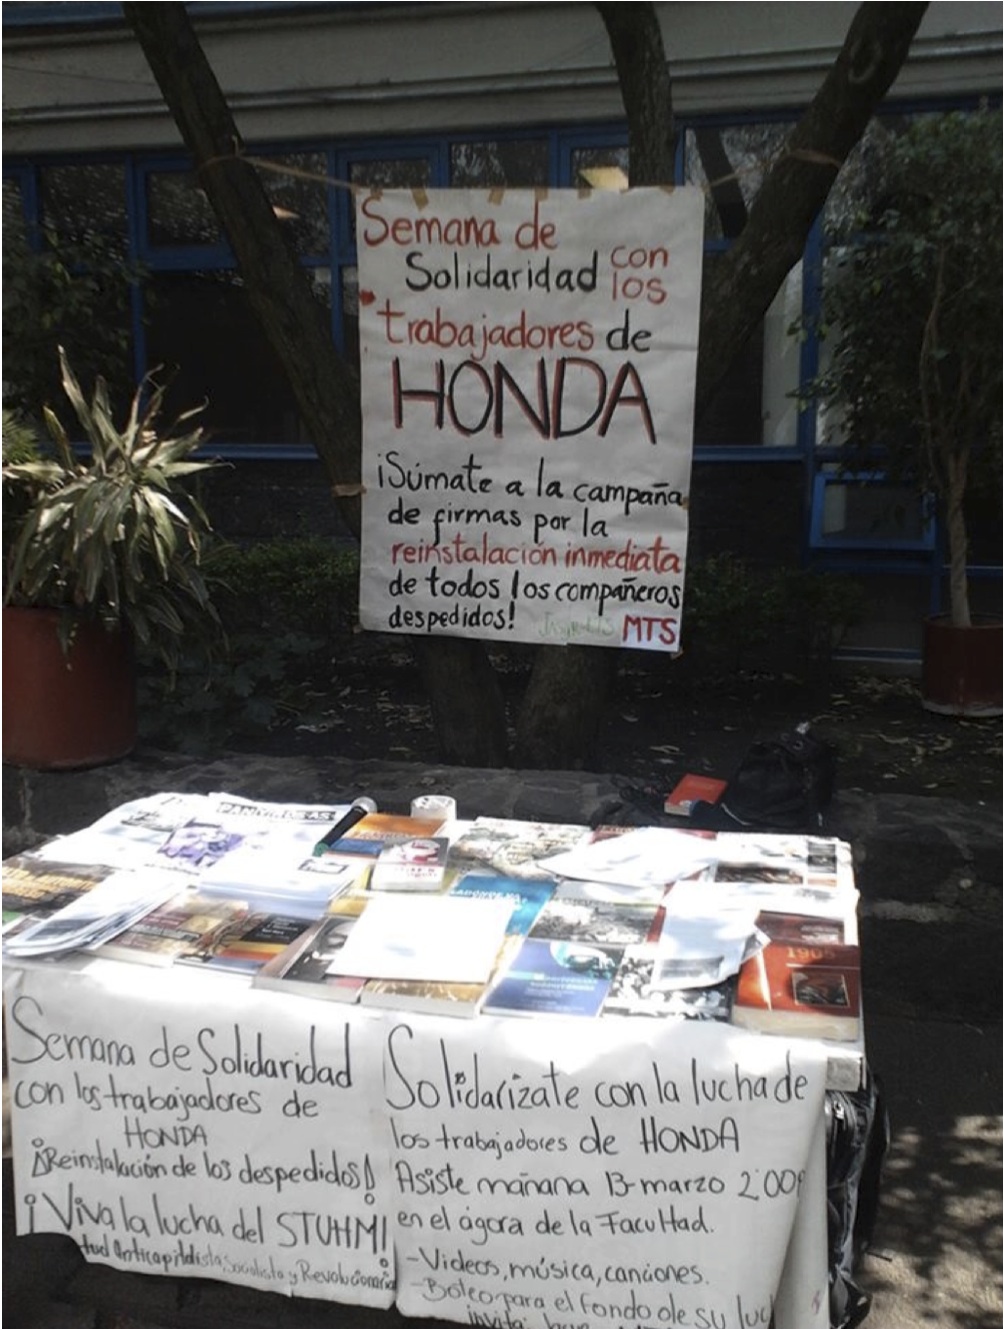 Semana de
Solidaridad con
los
trabajadores de
HONDA
¡Súmate a la campaña
de firmas por la
reinstalación inmediata
de todos los compañeros
despedidos!
MTS
1905
Semana de Solidaridad
con los trabajadores de
HONDA
¡Reinstalación de los despedidos!
¡Viva la lucha del STUHM!
Anticapitalista, Socialista y Revolucionaria
Solidarízate con la lucha de
los trabajadores de HONDA
Asiste mañana 13-marzo 2:00
en el ágora de la Facultad.
-Videos, música, canciones.
-Boteo para el fondo de su
invita: